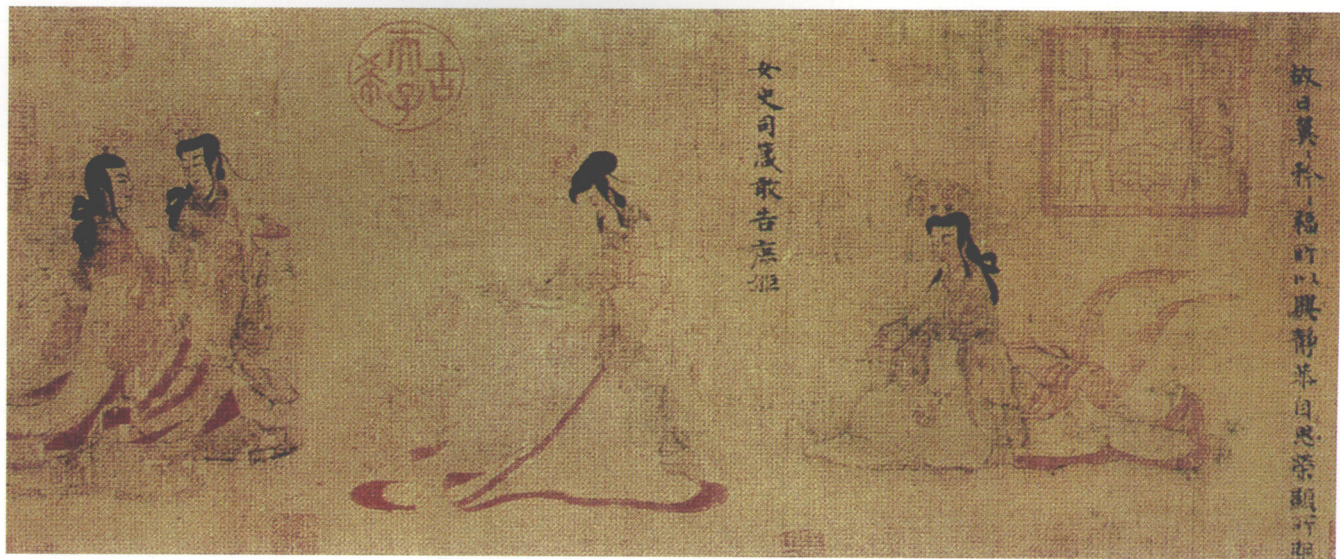 故曰翼〻矜〻福所以興靜恭自思榮顯所期
女史司箴敢告庶姬
古希天子